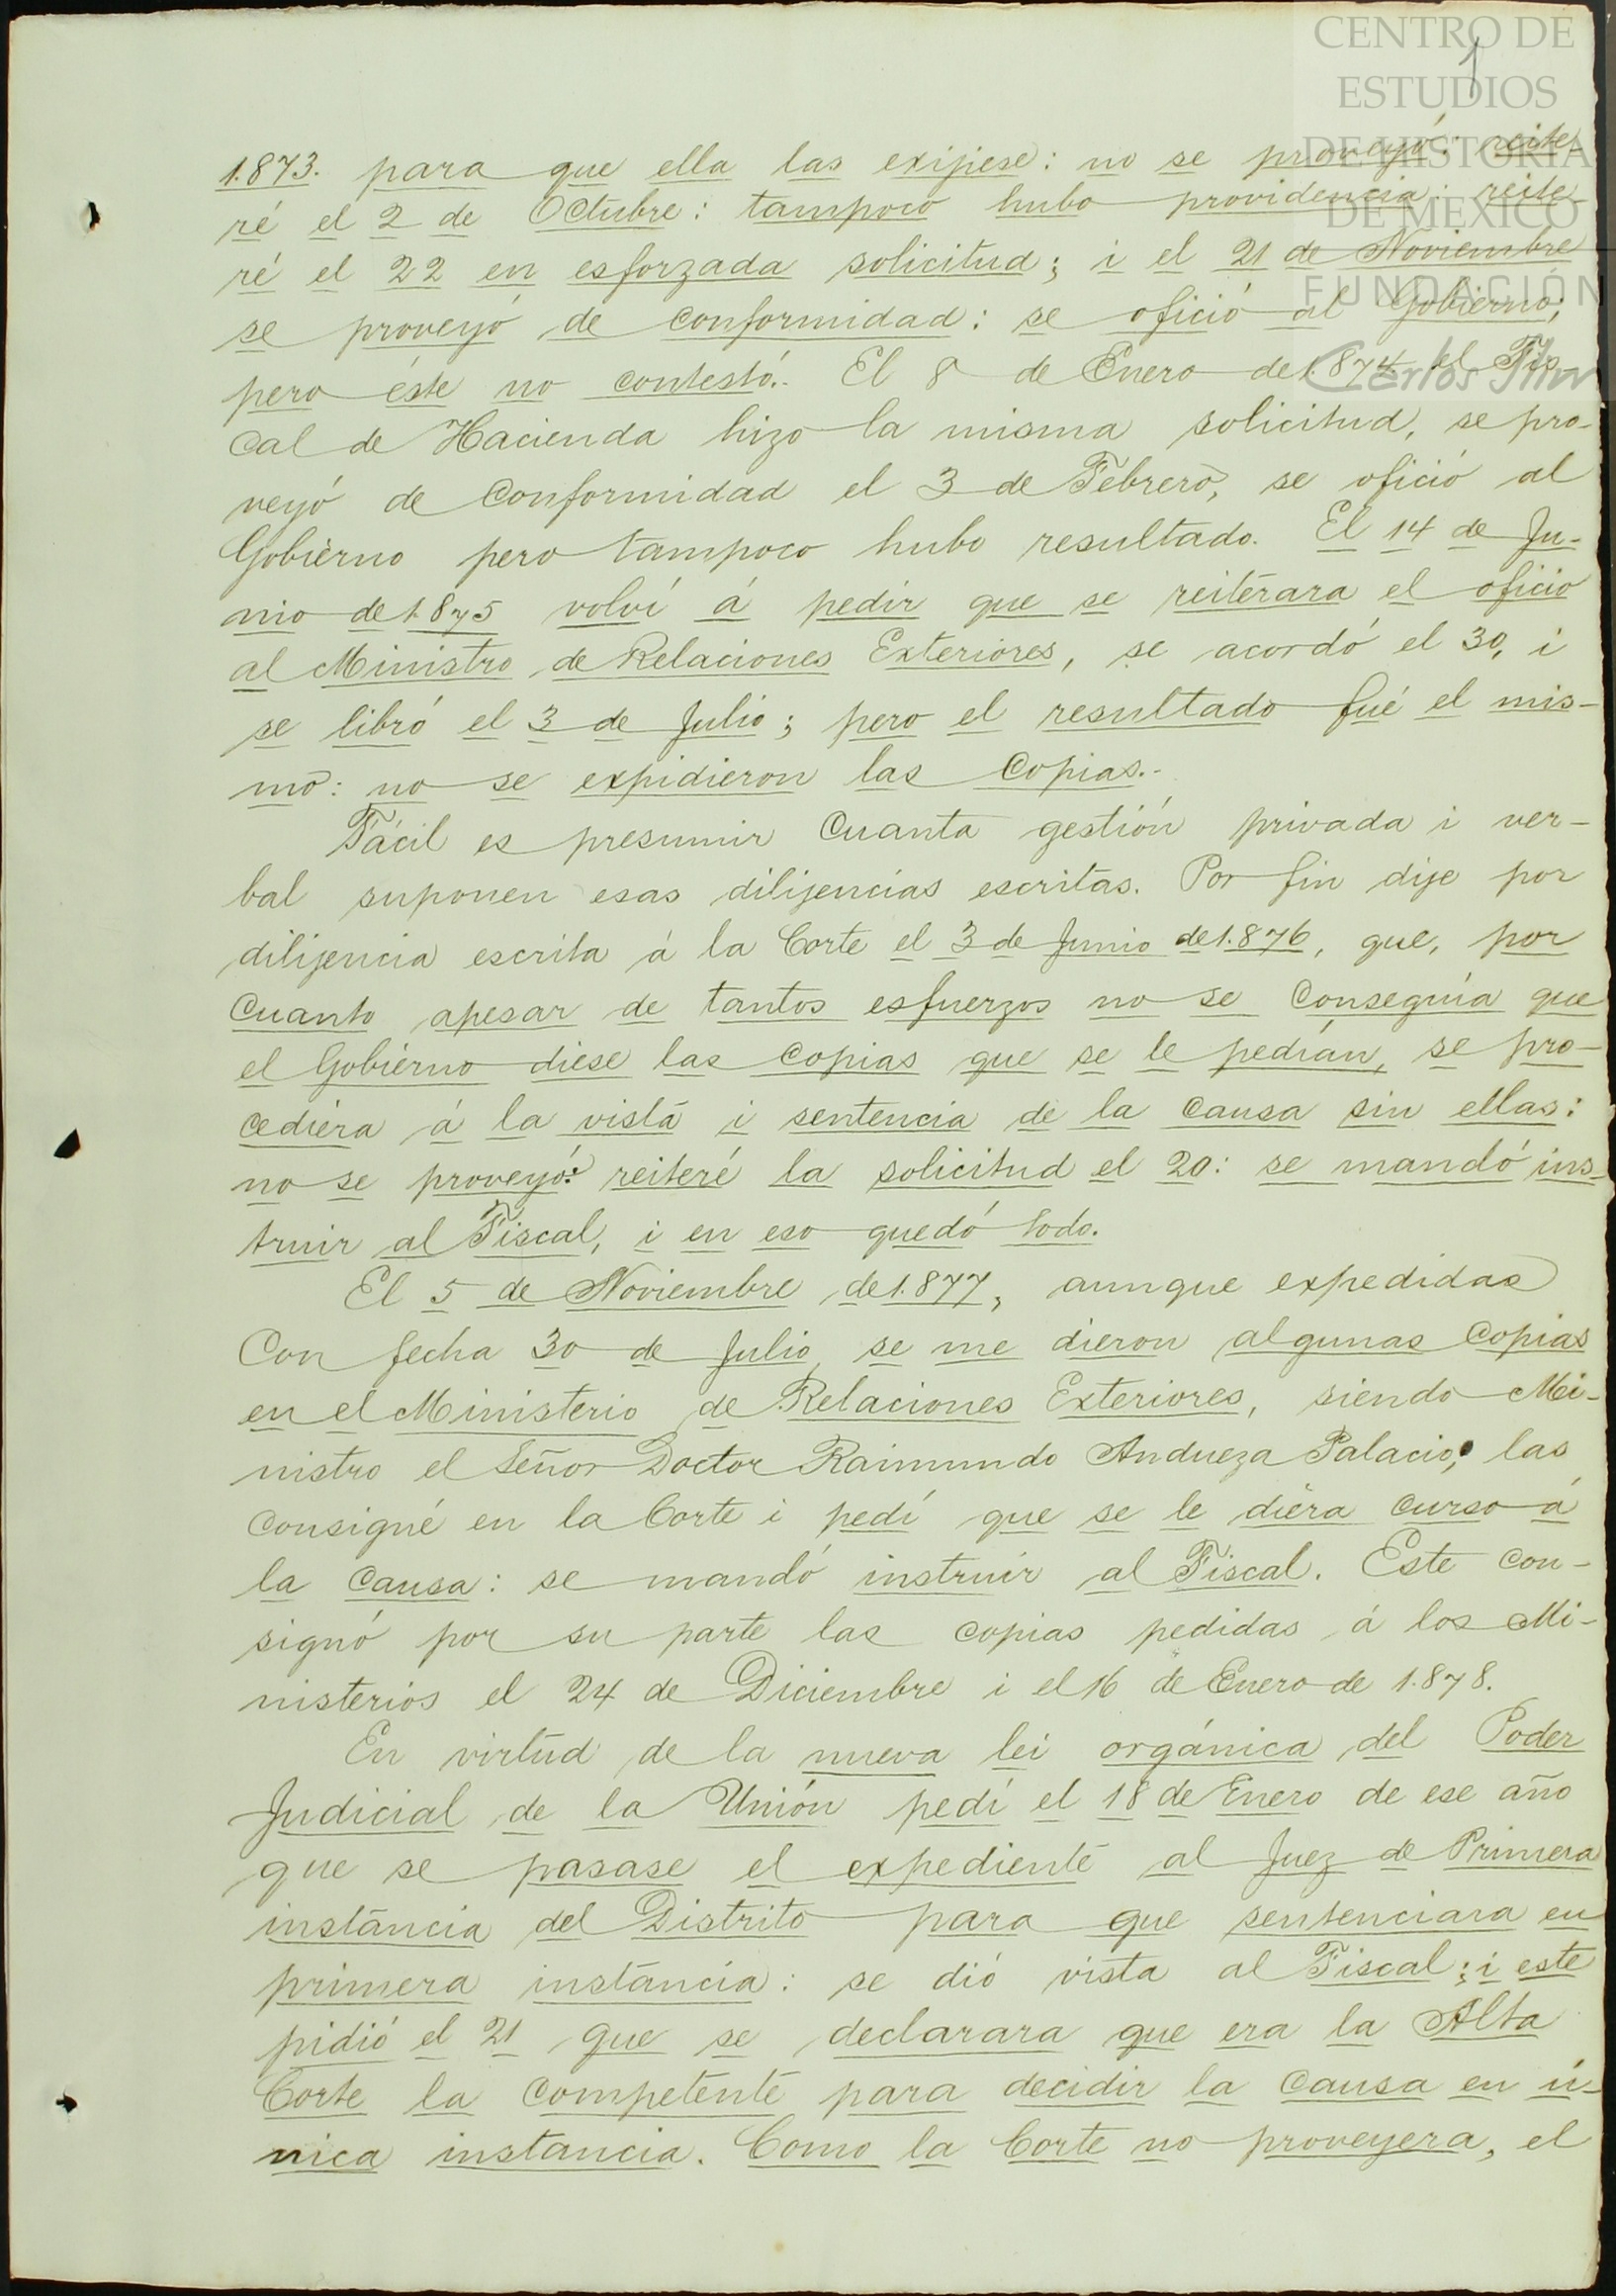 CENTRO DE
ESTUDIOS
DE HISTORIA
DE MÉXICO
FUNDACIÓN
Carlos Slim
1
1.873. para que ella las exijiese: no se proveyó: reite-
ré el 2 de Octubre: tampoco hubo providencia: reite-
ré el 22 en esforzada solicitud; i el 21 de Noviembre
se proveyó de conformidad: se ofició al Gobierno;
pero éste no contestó.- El 8 de Enero de 1.874 el Fis-
cal de Hacienda hizo la misma solicitud, se pro-
veyó de conformidad el 3 de Febrero, se ofició al
Gobierno pero tampoco hubo resultado. El 14 de Ju-
nio de 1.875 volví á pedir que se reiterara el oficio
al Ministro de Relaciones Exteriores, se acordó el 30, i
se libró el 3 de Julio; pero el resultado fué el mis-
mo: no se expidieron las copias.-
Fácil es presumir cuanta gestión privada i ver-
bal suponen esas dilijencias escritas. Por fin dije por
dilijencia escrita á la Corte el 3 de Junio de 1.876, que, por
cuanto apesar de tantos esfuerzos no se conseguía que
el Gobierno diese las copias que se le pedían, se pro-
cediera á la vista i sentencia de la causa sin ellas:
no se proveyó: reiteré la solicitud el 20: se mandó ins-
truir al Fiscal, i en eso quedó todo.
El 5 de Noviembre de 1.877, aunque expedidas
con fecha 30 de Julio, se me dieron algunas copias
en el Ministerio de Relaciones Exteriores, siendo Mi-
nistro el Señor Doctor Raimundo Andueza Palacio; las
consigné en la Corte i pedí que se le diera curso á
la causa: se mandó instruir al Fiscal. Este con-
signó por su parte las copias pedidas á los Mi-
nisterios el 24 de Diciembre i el 16 de Enero de 1.878.
En virtud de la nueva lei orgánica del Poder
Judicial de la Unión pedí el 18 de Enero de ese año
que se pasase el expediente al Juez de Primera
instancia del Distrito para que sentenciara en
primera instancia: se dió vista al Fiscal; i este
pidió el 21 que se declarara que era la Alta
Corte la competente para decidir la causa en ú-
nica instancia. Como la Corte no proveyera, el